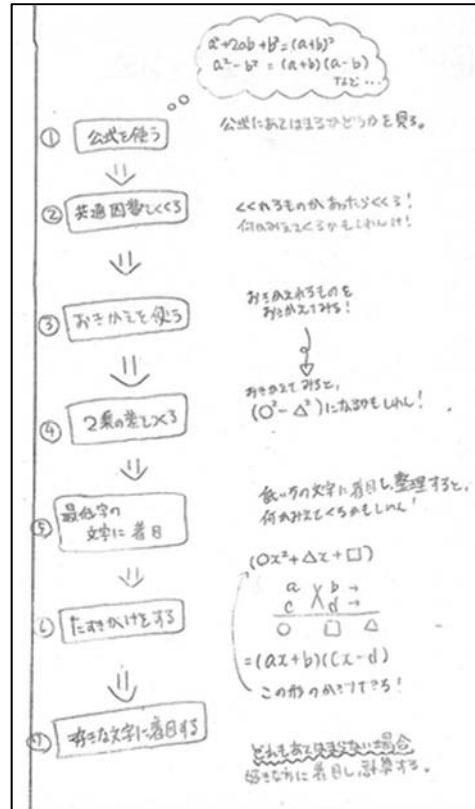 a²+2ab+b²=(a+b)²
a²-b² = (a+b)(a-b)
など…
① 公式を使う
公式にあてはまるかどうかを見る。
② 共通因数でくくる
くくれるものがあったらくくる!
何かみえてくるかもしれんけ!
③ おきかえを使う
おきかえれるものを
おきかえてみる!
おきかえてみると、
(○²-△²)になるかもしれん!
④ 2乗の差をつくる
⑤ 最低字の
文字に着目
低い方の文字に着目し、整理すると、
何かみえてくるかもしれん!
⑥ たすきがけをする
(○x²+△x+□)
a b →
c d →
○ □ △
=(ax+b)(cx-d)
この形のかき方できる!
⑦ 好きな文字に着目する
どれもあてはまらない場合
好きな方に着目し、計算する。